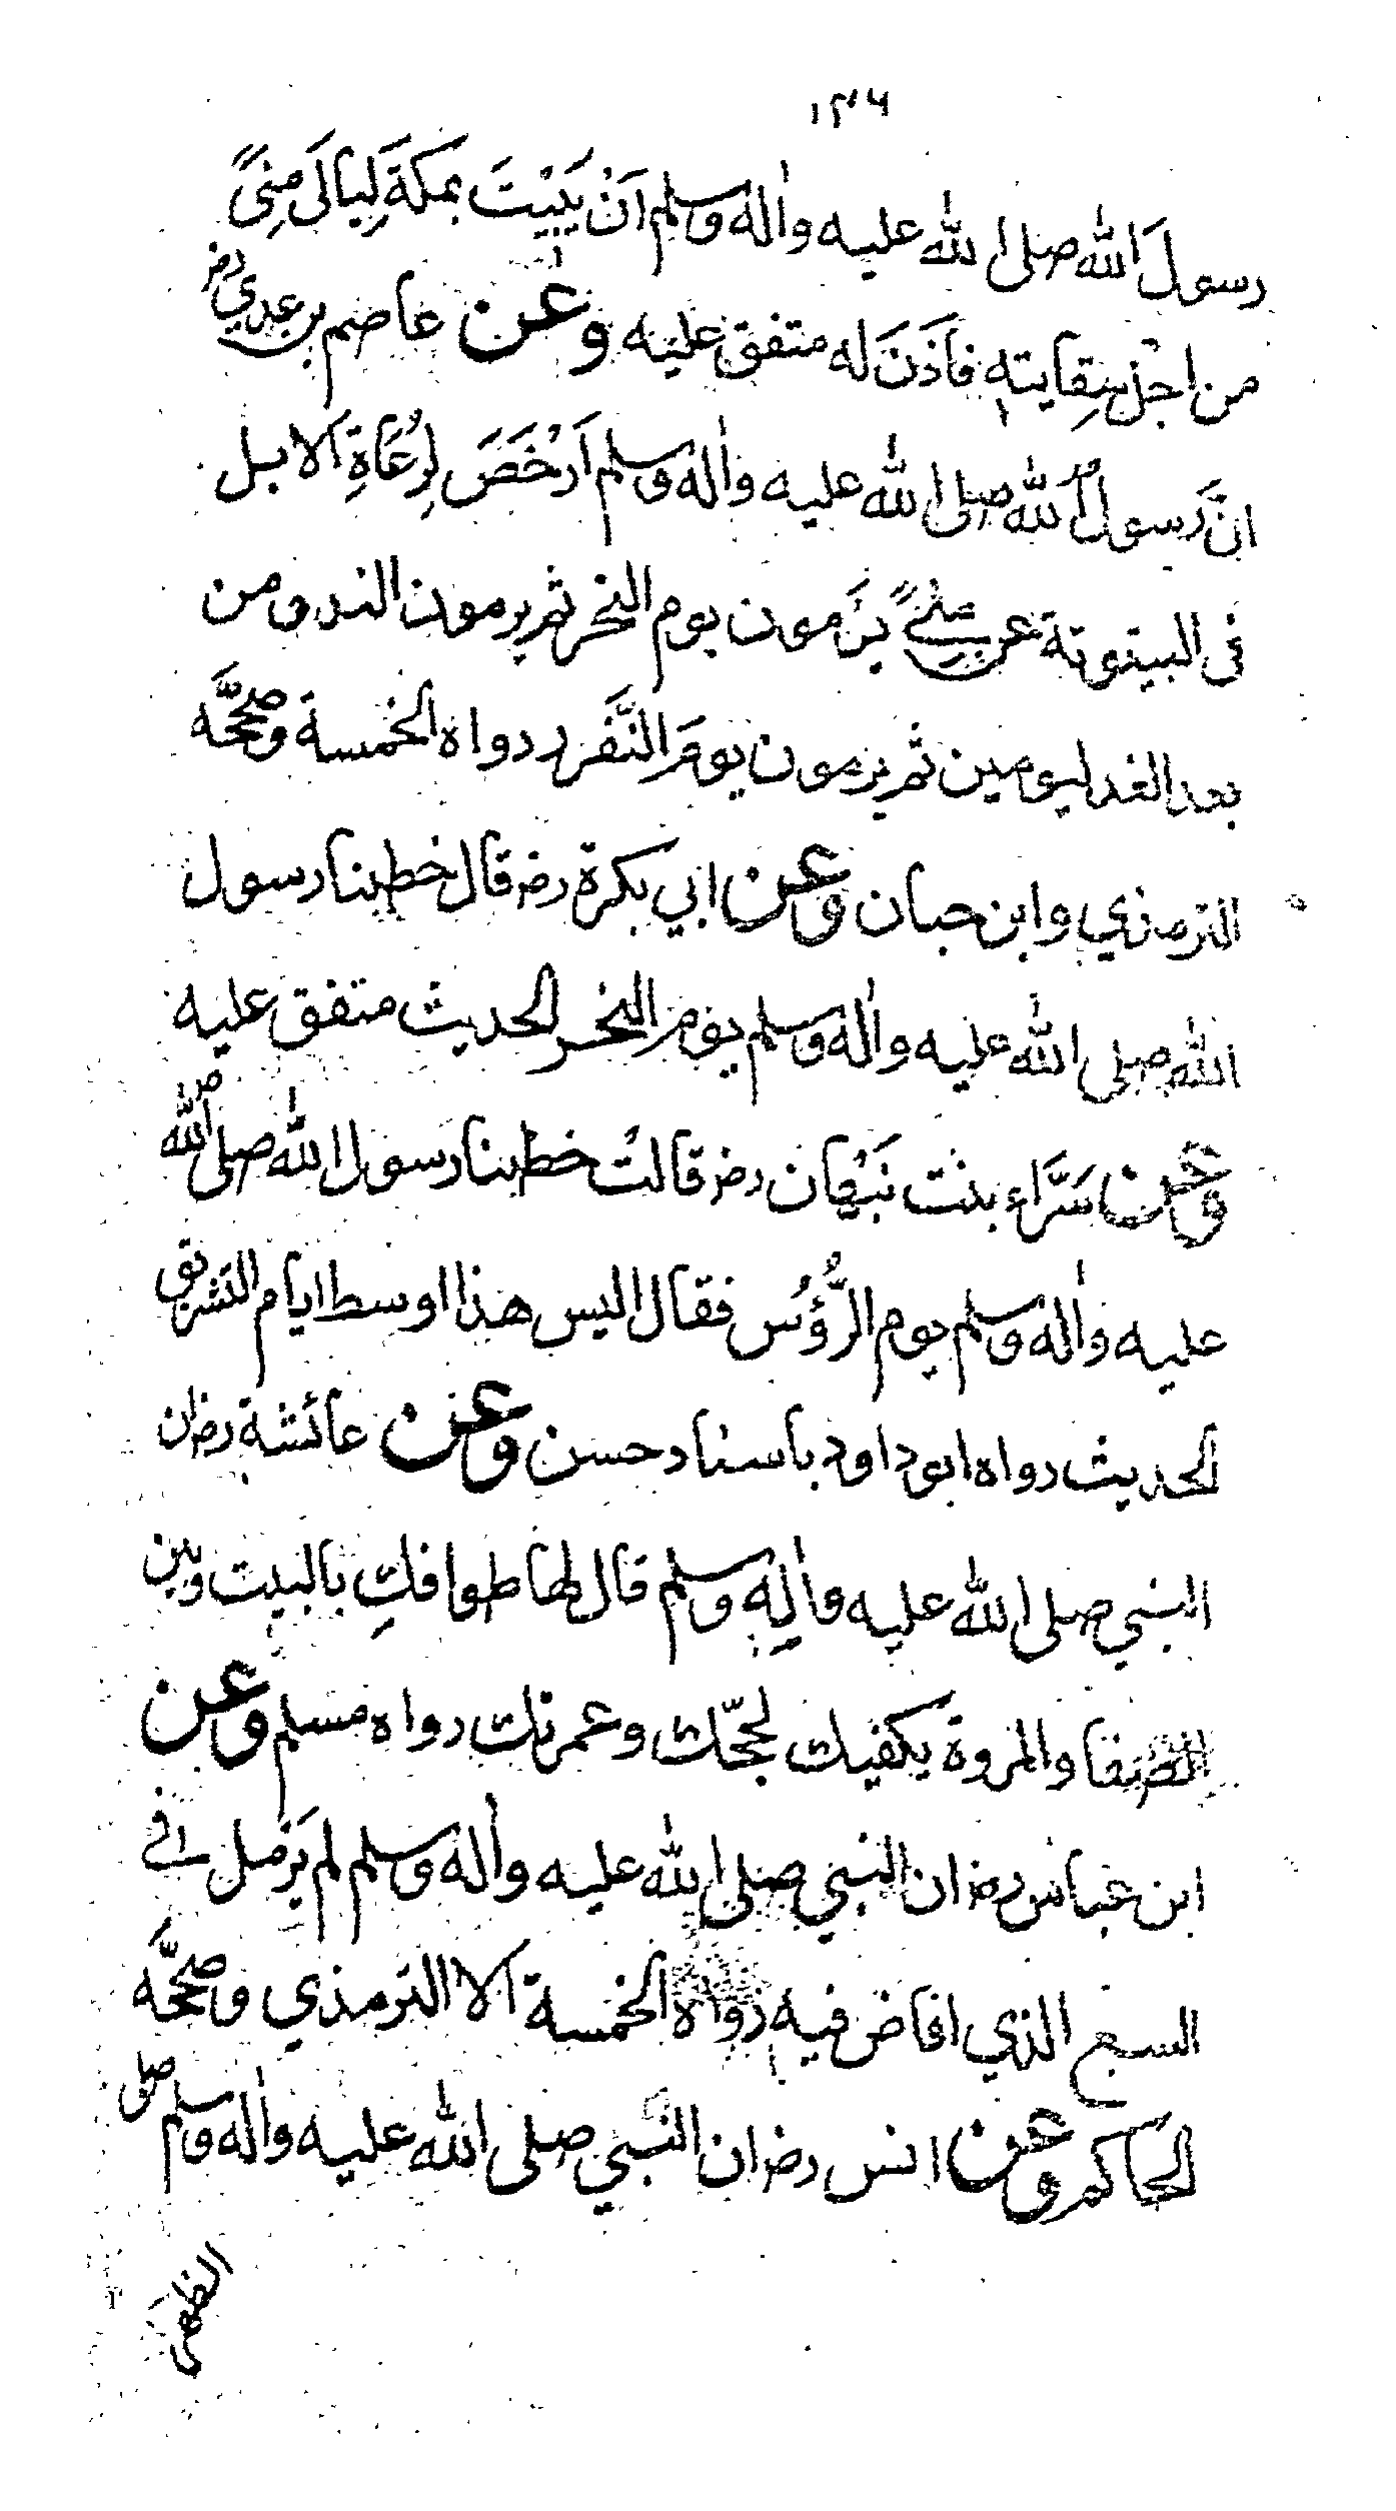 ١٣٦
رسولَ الله صلى الله عليه واٰله وسلم اَنْ يَبِيْتَ بمكةَ لِيالَى مِنىً
من اجل سِقايتهٖ فاَذَنَ له متفق عليه وعن عاصم بن عدي رض
انَّ رسولُ الله صلى الله عليه واٰله وسلم اَرْخَصَ لِرُعَاةِ الابل
فى البيتوتة عن مِنىً يَرْمون يوم النحر ثم يرمون الغد ومن
بعد الغد ليومين ثم يرمون يومَ النَّفَر رواه الخمسة وصحَّحَه
الترمذي وابن حبان وعن ابي بكرة رض قال خطبنا رسول
الله صلى الله عليه واٰله وسلم يوم النحر الحديث متفق عليه
وعن سَرَّاء بنت نَبْهان رض قالتْ خطبنا رسول الله صلى الله
عليه واٰله وسلم يوم الرُّؤُس فقال اليس هذا اوسط ايام التشريق
الحديث رواه ابو داود باسناد حسن وعن عائشة رض ان
النبي صلى الله عليه واٰلِهٖ وسلم قال لها طوافكِ بالبيت وبين
الصفا والمروة يكفيك لحجّك وعمرتك رواه مسلم وعن
ابن عباس رض ان النبي صلى الله عليه واٰله وسلم لم يَرْمل في
السبع الذي افاض فيه رواه الخمسة الا الترمذي وصحَّحَه
الحاكم وعن انس رض ان النَّبي صلى الله عليه واٰله وسلم صلى
الظهر